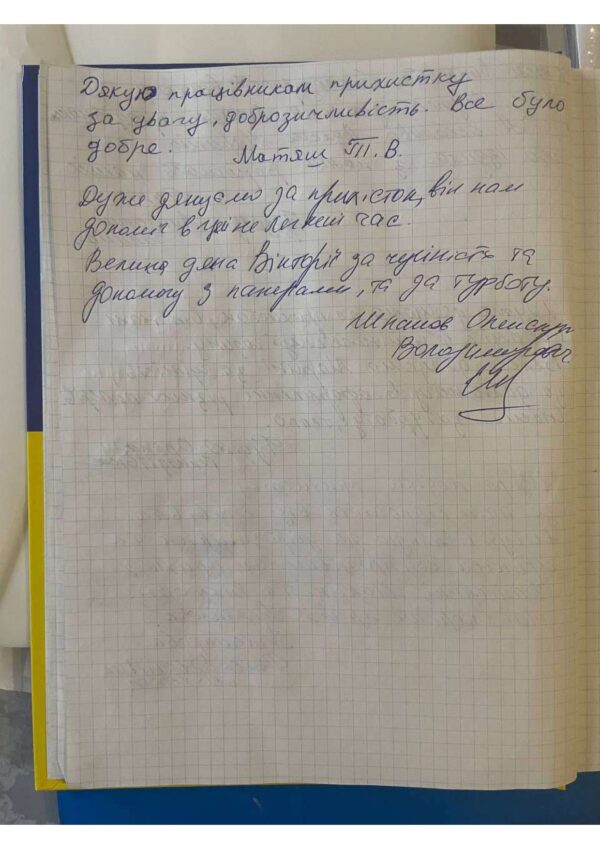 Дякую працівникам прихистку
за увагу, доброзичливість. Все було
добре. Матяш Т. В.
Дуже дякуємо за прихісток, він нам
допоміг в цій не легкий час.
Велика дяка Вікторії за чуйність та
допомогу з паперами, та за турботу.
Шпаков Олександр
Володимирович